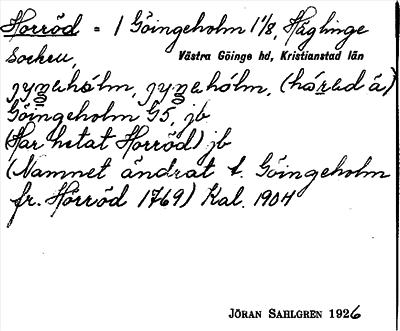 Horröd = 1 Göingeholm 1 1/8, Häglinge
Socken, Västra Göinge hd, Kristianstad län
Göingeholm G5, jb
(Har hetat Horröd) jb
(Namnet ändrat t. Göingeholm
fr. Hörröd 1769) Kal. 1904
JÖRAN SAHLGREN 1926